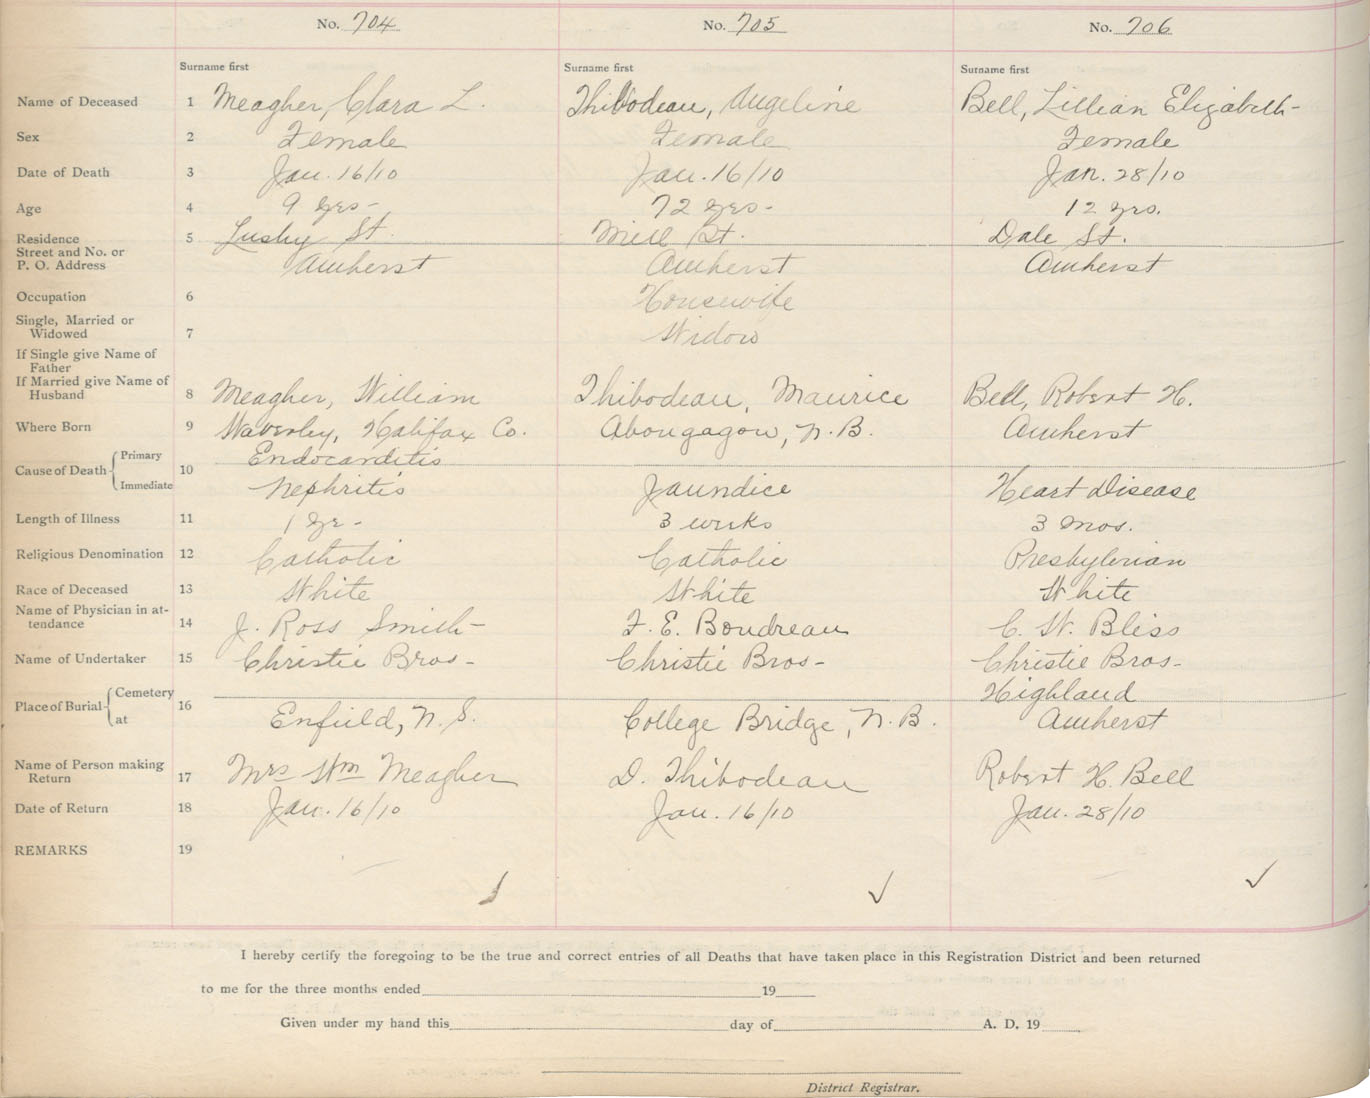 No. 704 No. 705 No. 706
Surname first Surname first Surname first
Name of Deceased 1 Meagher, Clara L. Thibodeau, Angeline Bell, Lillian Elizabeth
Sex 2 Female Female Female
Date of Death 3 Jan. 16/10 Jan. 16/10 Jan. 28/10
Age 4 9 yrs- 72 yrs- 12 yrs.
Residence 5 Lusby St. Mill St. Dale St.
Street and No. or
P. O. Address Amherst Amherst Amherst
Occupation 6 Housewife
Single, Married or
Widowed 7 Widow
If Single give Name of
Father
If Married give Name of
Husband 8 Meagher, William Thibodeau, Maurice Bell, Robert H.
Where Born 9 Waverley, Halifax Co. Abougagow, N.B. Amherst
Cause of Death Primary 10 Endocarditis
Immediate Nephritis Jaundice Heart Disease
Length of Illness 11 1 yr- 3 weeks 3 mos.
Religious Denomination 12 Catholic Catholic Presbyterian
Race of Deceased 13 White White White
Name of Physician in at-
tendance 14 J. Ross Smith- F. E. Boudreau C. W. Bliss
Name of Undertaker 15 Christie Bros- Christie Bros- Christie Bros-
Place of Burial Cemetery 16 Highland
at Enfield, N.S. College Bridge, N.B. Amherst
Name of Person making
Return 17 Mrs Wm Meagher D. Thibodeau Robert H. Bell
Date of Return 18 Jan. 16/10 Jan. 16/10 Jan. 28/10
REMARKS 19
I hereby certify the foregoing to be the true and correct entries of all Deaths that have taken place in this Registration District and been returned
to me for the three months ended 19
Given under my hand this day of A. D. 19
District Registrar.